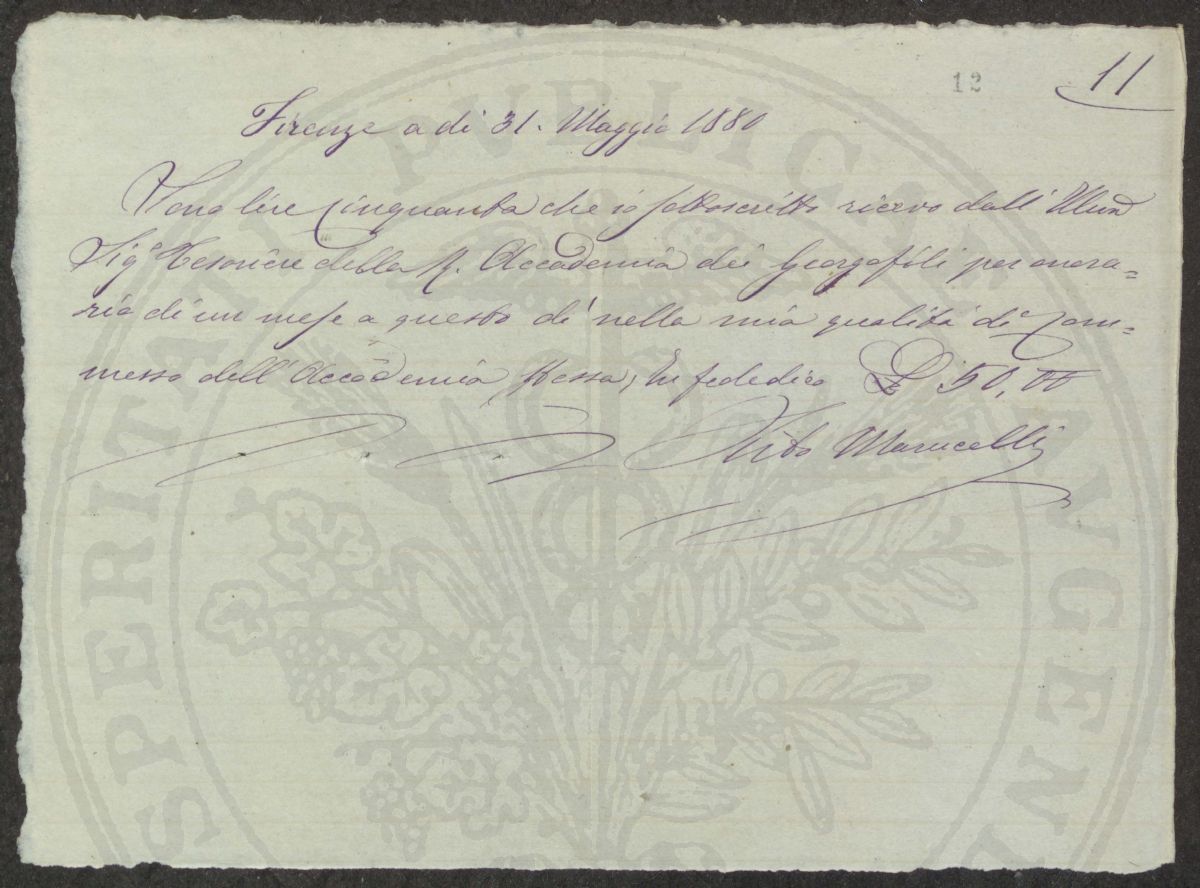 12
11
Firenze a di 31. Maggio 1880
Sono lire cinquanta che io sottoscritto ricevo dall' Illmo
Sigr Tesoriere della R. Accademia dei Georgofili per onora=
rio di un mese a questo dì nella mia qualità di Com=
messo dell' Accademia stessa, In fede dico £ 50,00
Vito Marucelli
PROSPERITATI PVBLICAE AVGENDAE